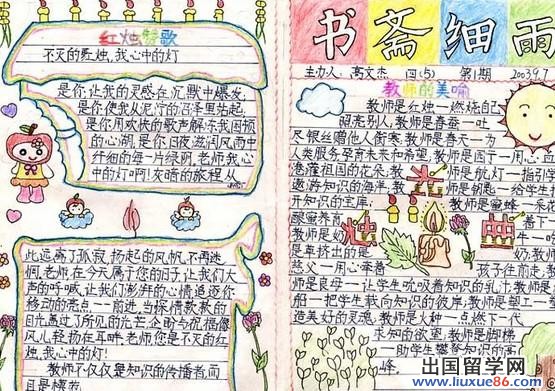 红烛赞歌
不灭的红烛,我心中的灯
是你,让我的灵感在沉默中爆发,
是你,使我从泥泞的沼泽里站起,
是你,用欢快的歌声解冻我困顿
的心湖,是你,日夜滋润风雨中
纤细的每一片绿阴,老师,我心
中的灯啊!灰暗的旅程从
此远离了孤寂,扬起的风帆,不再迷
惘,老师,在今天属于您的日子,让我们大
声的呼喊,让我们澎湃的心情追逐你
移动的亮点一一前进,当深情款款的
目光盖过了所见的光芒,企盼与祝福像
风儿,轻扬在耳畔,老师,您是不灭的红
烛,我心中的灯!
教师不仅仅是知识的传播者,而
且是模范
书斋细雨
主办人:高文杰 四(5) 第1期 2003.9.7
教师的美喻
教师是红烛一燃烧自己
照亮别人,教师是春蚕一吐
尽银丝赠他人御寒,教师是春天一为
人类服务孕育未来和希望,教师是园丁一用心血
浇灌祖国的花朵,教师是航灯一指引学
遨游知识的海洋,教师是钥匙一给学生打
开知识的宝库,教师是蜜蜂一采花
酿蜜养育
教师是
是牵挤出的是
慈父一用心牵着孩子往前走,教
师是良母一让学生吮吸着知识的乳汁,教师是
船一把学生载向知识的彼岸,教师是塑工一塑
造美好的灵魂,教师是火种一点燃下一代
求知的欲望,教师是脚梯
一助学生攀登知识的高
峰。
出国留学网
www.liuxue86.com